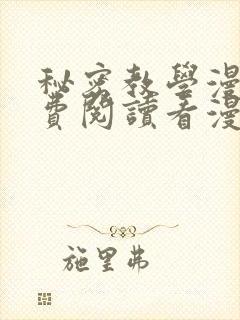 秘密教學漫
費閱讀看漫
施里弗